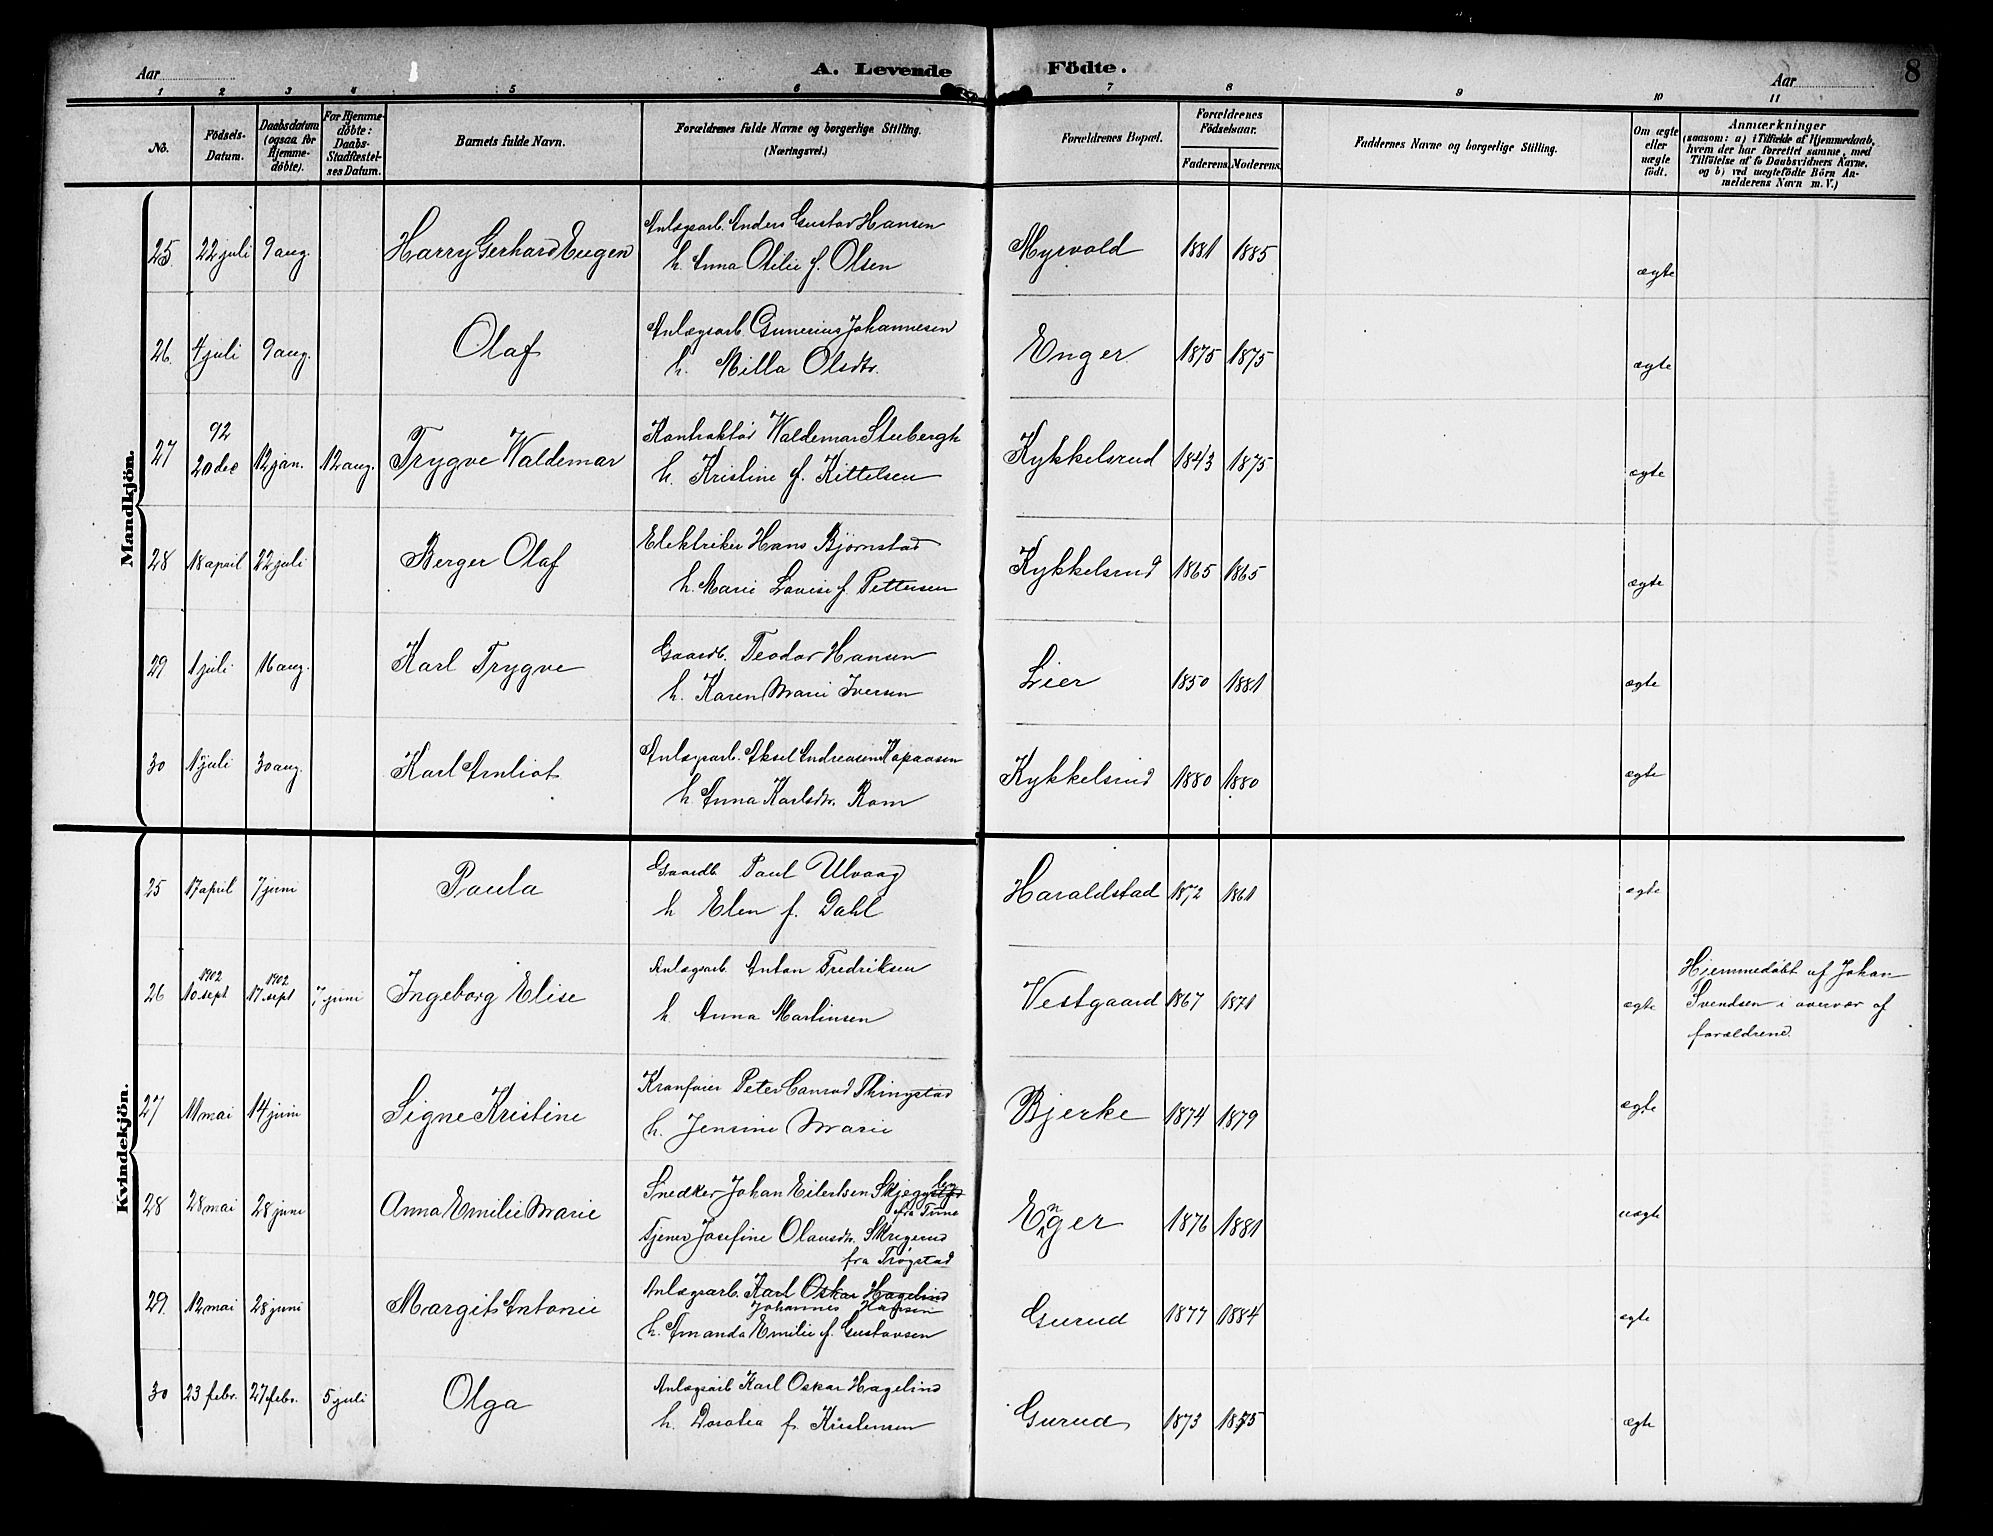 Aar
A. Levende Födte.
Aar
8
1 2 3 4 5 6 7 8 9 10 11
No.
Födsels-Datum.
Daabsdatum (ogsaa for Hjemmedöbte).
For Hjemmedöbte: Daabs-Stadfæstelses Datum.
Barnets fulde Navn.
Forældrenes fulde Navne og borgerlige Stilling. (Næringsvei.)
Forældrenes Bopæl.
Forældrenes Födselsaar.
Faderens. Moderens.
Faddernes Navne og borgerlige Stilling.
Om ægte eller uægte födt.
Anmærkninger
(saasom: a) i Tilfælde af Hjemmedaab,
hvem der har forrettet samme, med
Tilföielse af to Daabsvidners Navne,
og b) ved uægtefödte Börn An-
melderens Navn m. V.)
Mandkjön.
25. 22 juli 9 aug. Harry Gerhard Eugen Anlægsarb. Anders Gustav Hansen
h. Anna Otilie f. Olsen Myrvold 1881 1885 ægte
26. 4 juli 9 aug. Olaf Anlægsarb. Gunerius Johannesen
h. Milla Olsdtr. Enger 1875 1875 ægte
27 92
20 dec 12 jan. 12 aug. Trygve Waldemar Kontraktör Waldemar Stubergh
h. Kristine f. Kittelsen Kykkelsrud 1843 1875 ægte
28 18 april 22 juli Berger Olaf Elektriker Hans Björnstad
h. Marie Lovise f. Pettersen Kykkelsrud 1865 1865 ægte
29 1 juli 16 aug. Karl Trygve Gaardb. Teodor Hansen
h. Karen Marie Iversen Lier 1850 1881 ægte
30 1 juli 30 aug. Karl Arnliot Anlægsarb. Aksel Andreasen Kopaasen
h. Anna Karlsdtr. Rom Kykkelsrud 1880 1880 ægte
Kvindekjön.
25 17 april 7 juni Paula Gaardb. Paul Ulvaag
h Elen f. Dahl Haraldstad 1872 1861 ægte
26 1902 10 sept 1902 17 sept 7 juni Ingeborg Elise Anlægsarb. Anton Fredriksen
h. Anna Martinsen Vestgaard 1867 1871 ægte
Hjemmedöbt af Johan
Svendsen i overvær af
forældrene.
27 11 mai 14 juni Signe Kristine Kranförer Peter Conrad Thingstad
h. Jensine Marie Bjerke 1874 1879 ægte
28 28 mai 28 juni Anna Emilie Marie Snedker Johan Eilertsen
fra Tune
Tjener Josefine Olausdtr. Skrigerud
fra Trögstad Enger 1876 1881 uægte
29. 12 mai 28 juni Margit Antonie Anlægsarb. Karl Oskar Hagelind
Johannes Hansen
h. Amanda Emilie f. Gustavsen Gurud 1877 1884 ægte
30 23 febr. 27 febr. 5 juli Olga Anlægsarb Karl Oskar Hagelind
h. Dorotea f. Kristensen Gurud 1873 1875 ægte